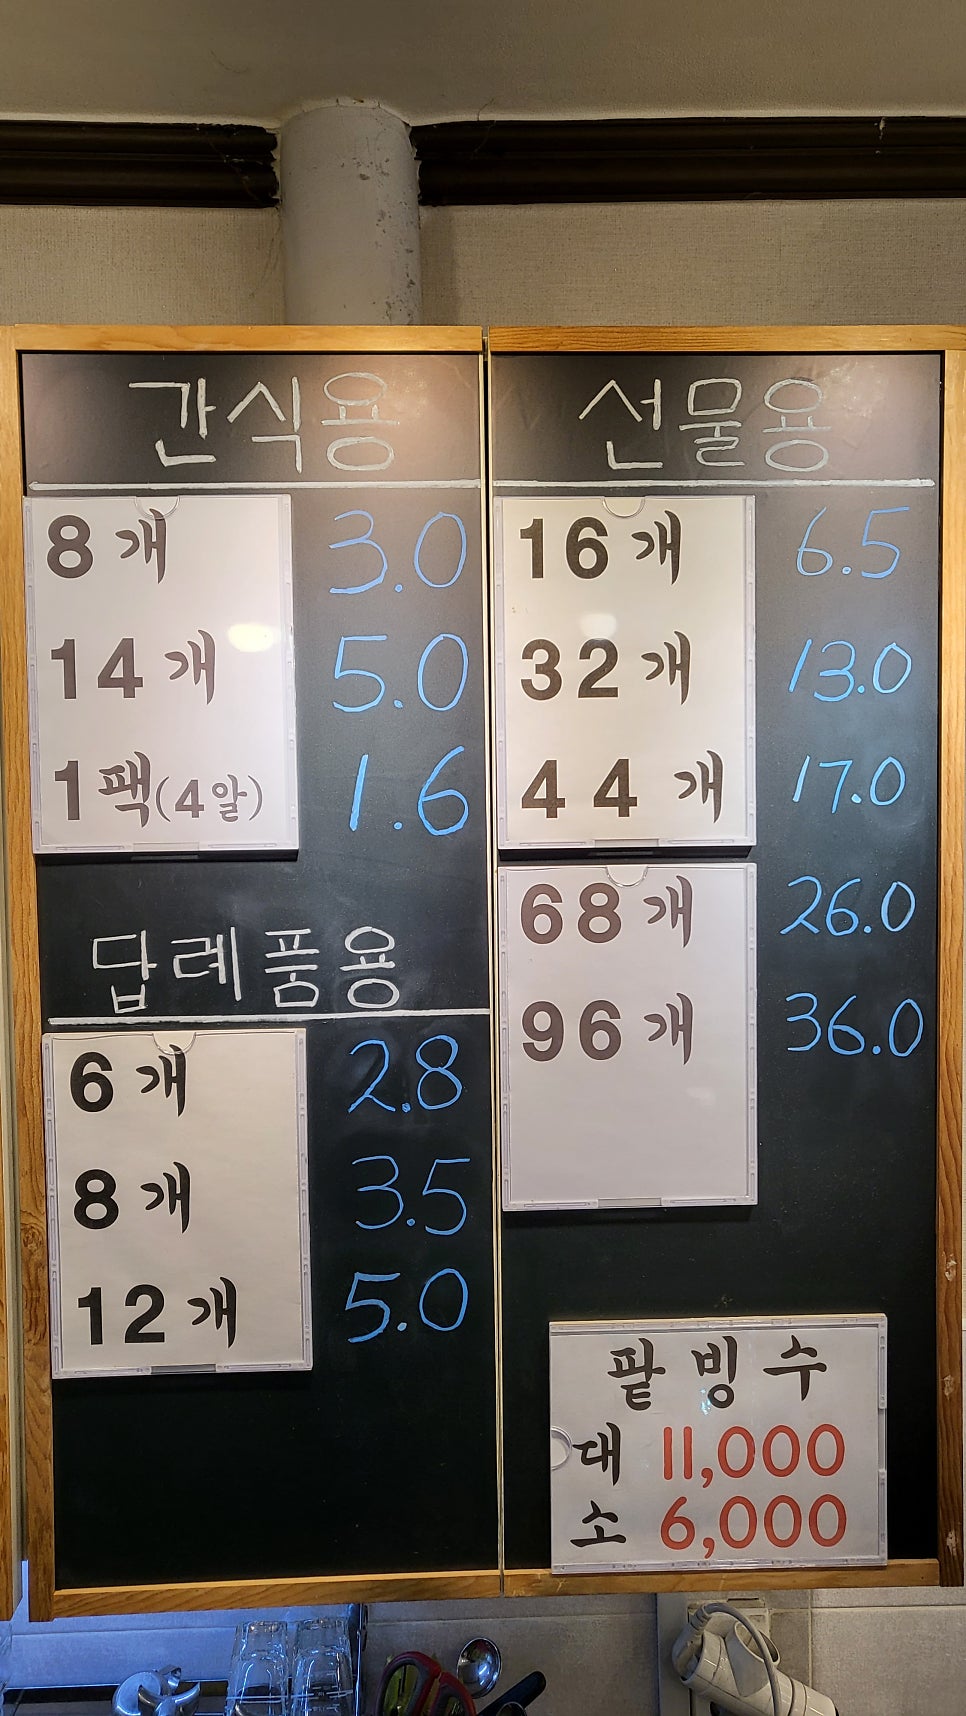 간식용
8개 3.0
14개 5.0
1팩(4알) 1.6
답례품용
6개 2.8
8개 3.5
12개 5.0
선물용
16개 6.5
32개 13.0
44개 17.0
68개 26.0
96개 36.0
팥빙수
대 11,000
소 6,000